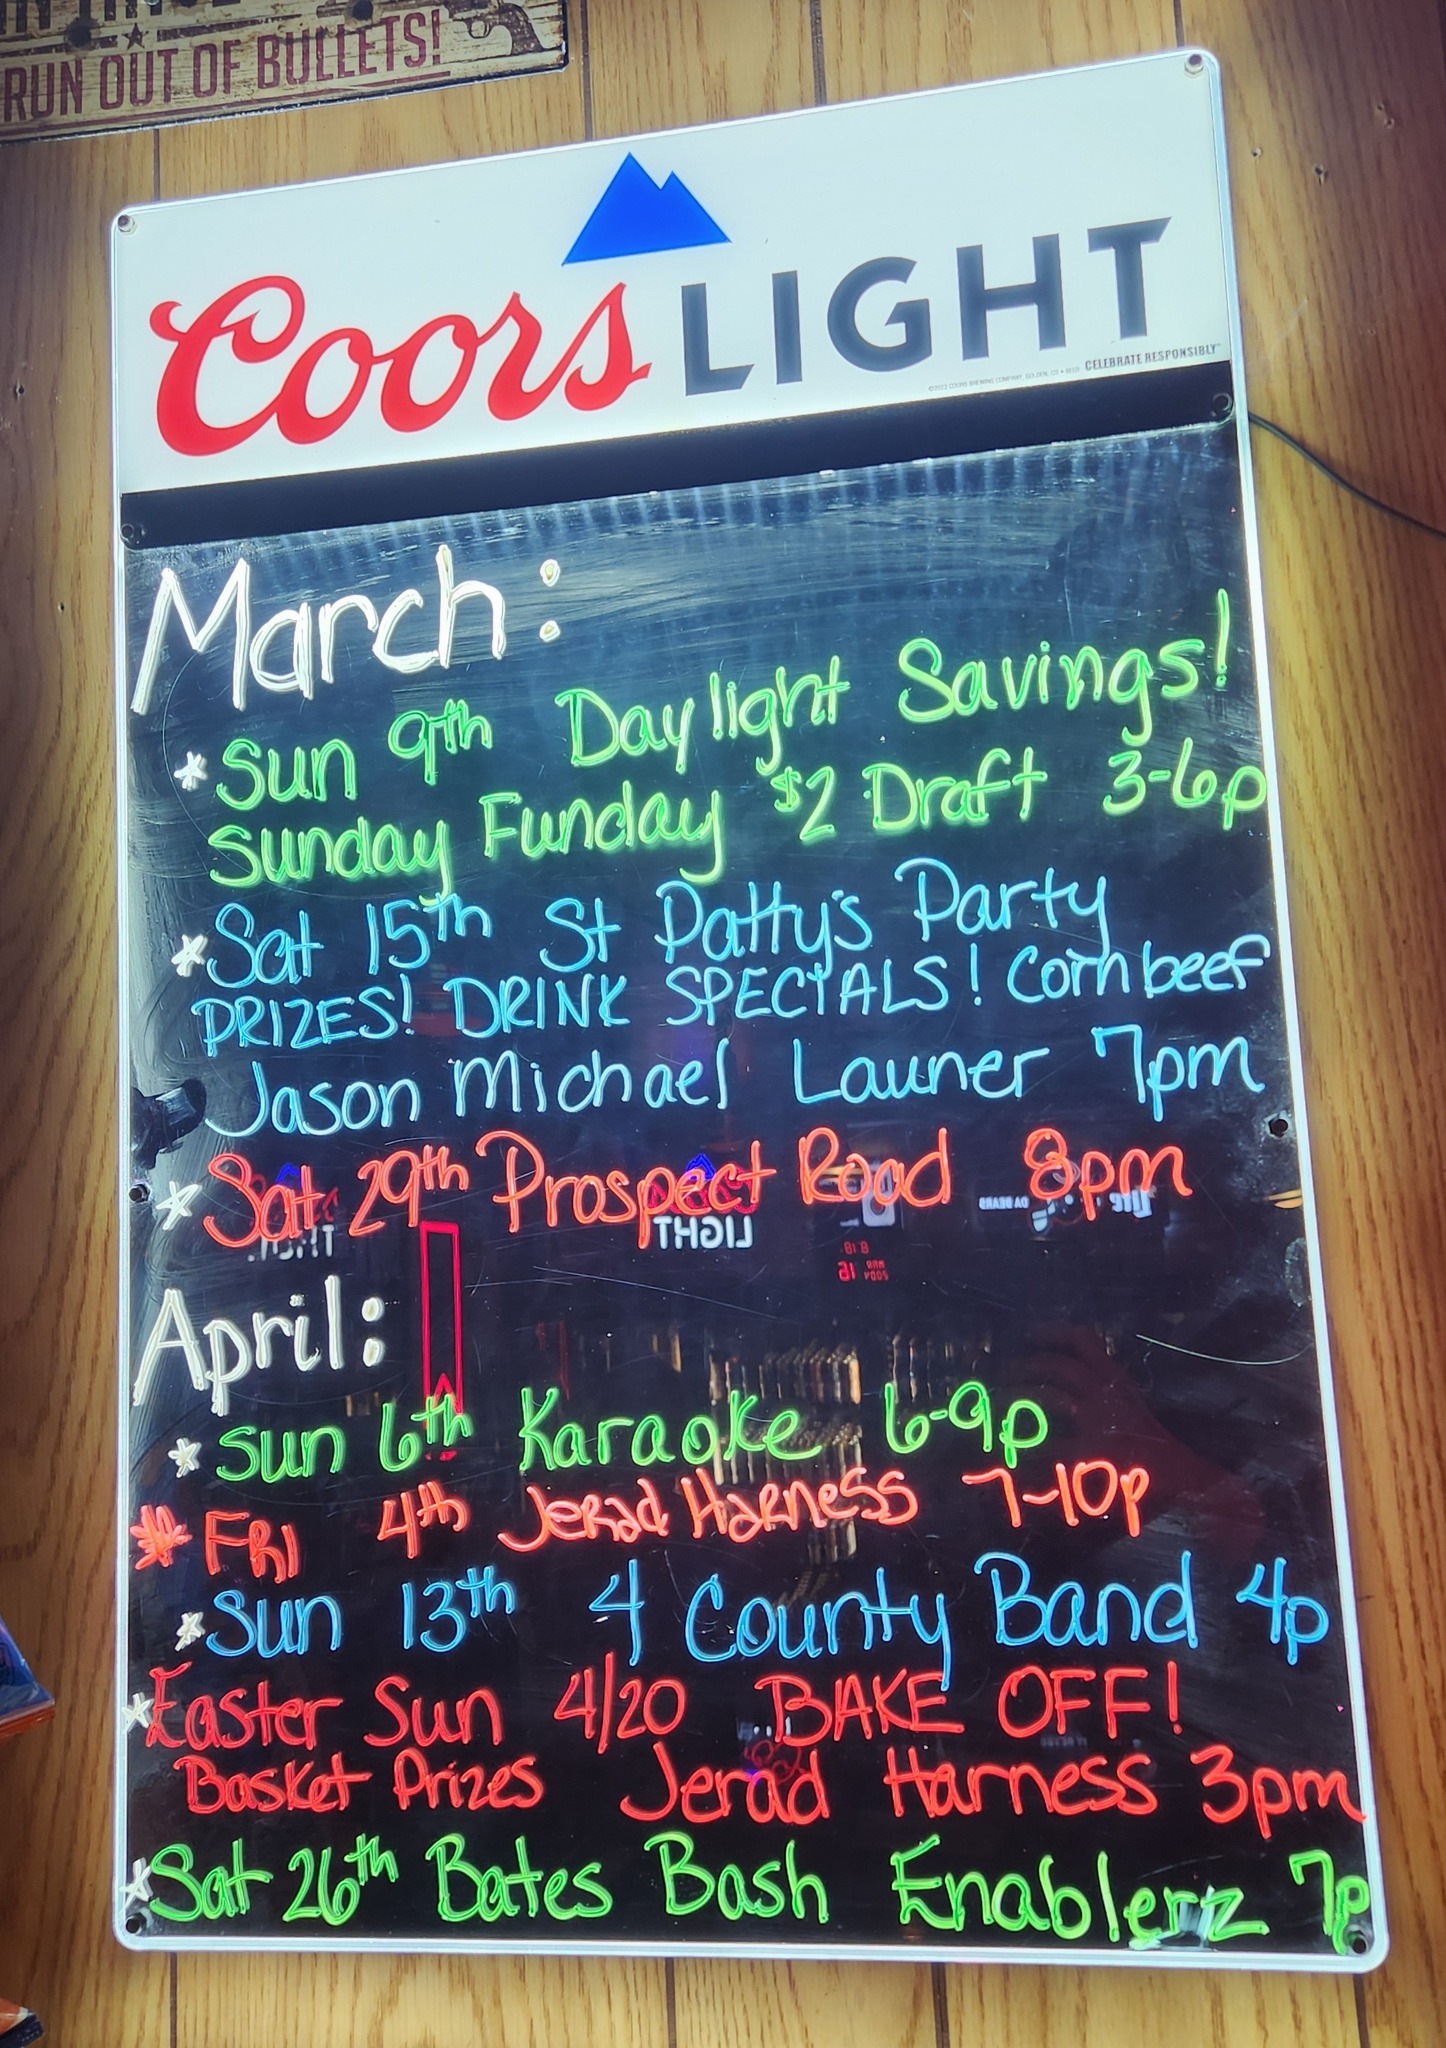 RUN OUT OF BULLETS!
Coors LIGHT
©2023 COORS BREWING COMPANY, GOLDEN, CO • BEER CELEBRATE RESPONSIBLY
March:
* Sun 9th Daylight Savings!
Sunday Funday $2 Draft 3-6p
* Sat 15th St Patty's Party
PRIZES! DRINK SPECIALS! Corn beef
Jason Michael Launer 7pm
* Sat 29th Prospect Road 8pm
April:
* Sun 6th Karaoke 6-9p
* FRI 4th Jerad Harness 7-10p
* Sun 13th 4 County Band 4p
* Easter Sun 4/20 BAKE OFF!
Basket Prizes Jerad Harness 3pm
* Sat 26th Bates Bash Enablerz 7p